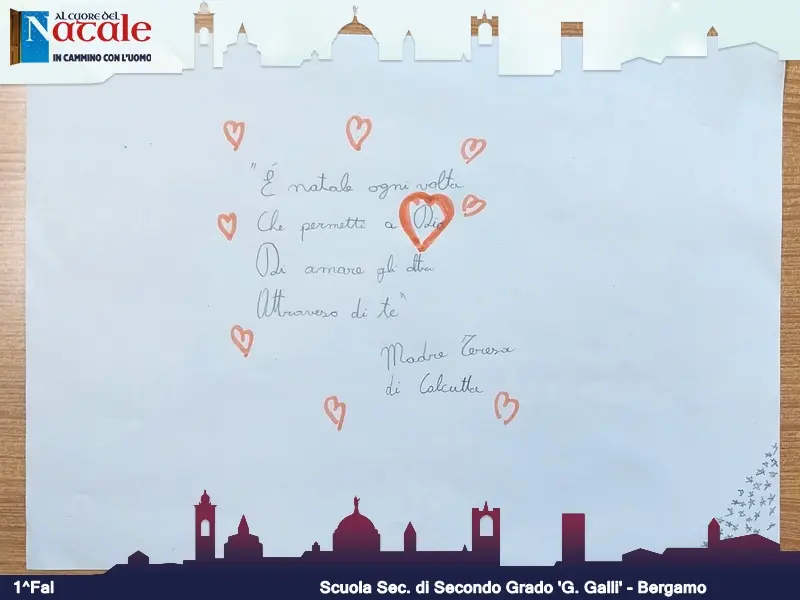 AL CUORE DEL
NATALE
IN CAMMINO CON L'UOMO
"É natale ogni volta
Che permetti a Dio
Di amare gli altri
Attraverso di te"
Madre Teresa
di Calcutta
1^FaI
Scuola Sec. di Secondo Grado 'G. Galli' - Bergamo